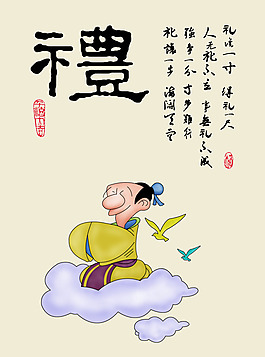 禮
礼让一寸 得礼一尺
人无礼不立 事無礼不成
強争一分 寸步难行
礼讓一步 海阔天空